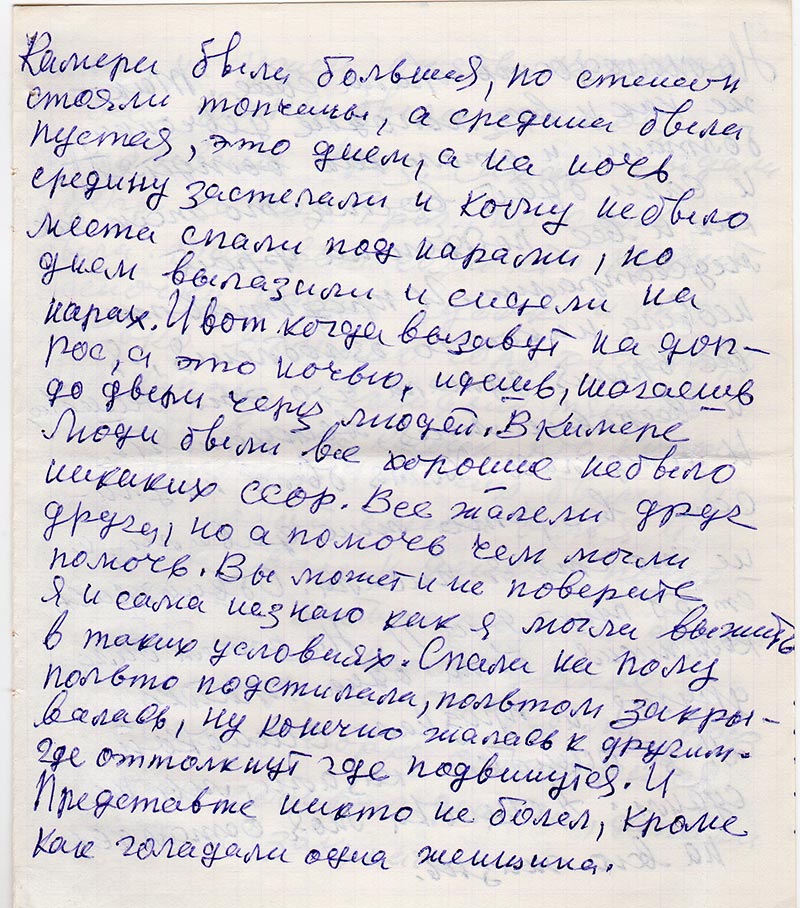 Камера была большая, по стенам
стояли топчаны, а средина была
пустая, это днем, а на ночь
средину застелали и кому небыло
места спали под нарами, но
днем вылазили и сидели на
нарах. И вот когда вызавут на доп-
рос, а это ночью, идешь, шагаешь
до двери через людей. В камере
люди были все хорошие небыло
никаких ссор. Все жалели друг
друга, но а помочь чем могли
помочь. Вы может и не поверите
я и сама незнаю как я могла выжить
в таких условиях. Спали на полу
польто подстилала, польтом закры-
валась, ну конечно жалась к другим.
где оттолкнут где подвинутся. И
Представте никто не болел, кроме
как голадали одна женщина.